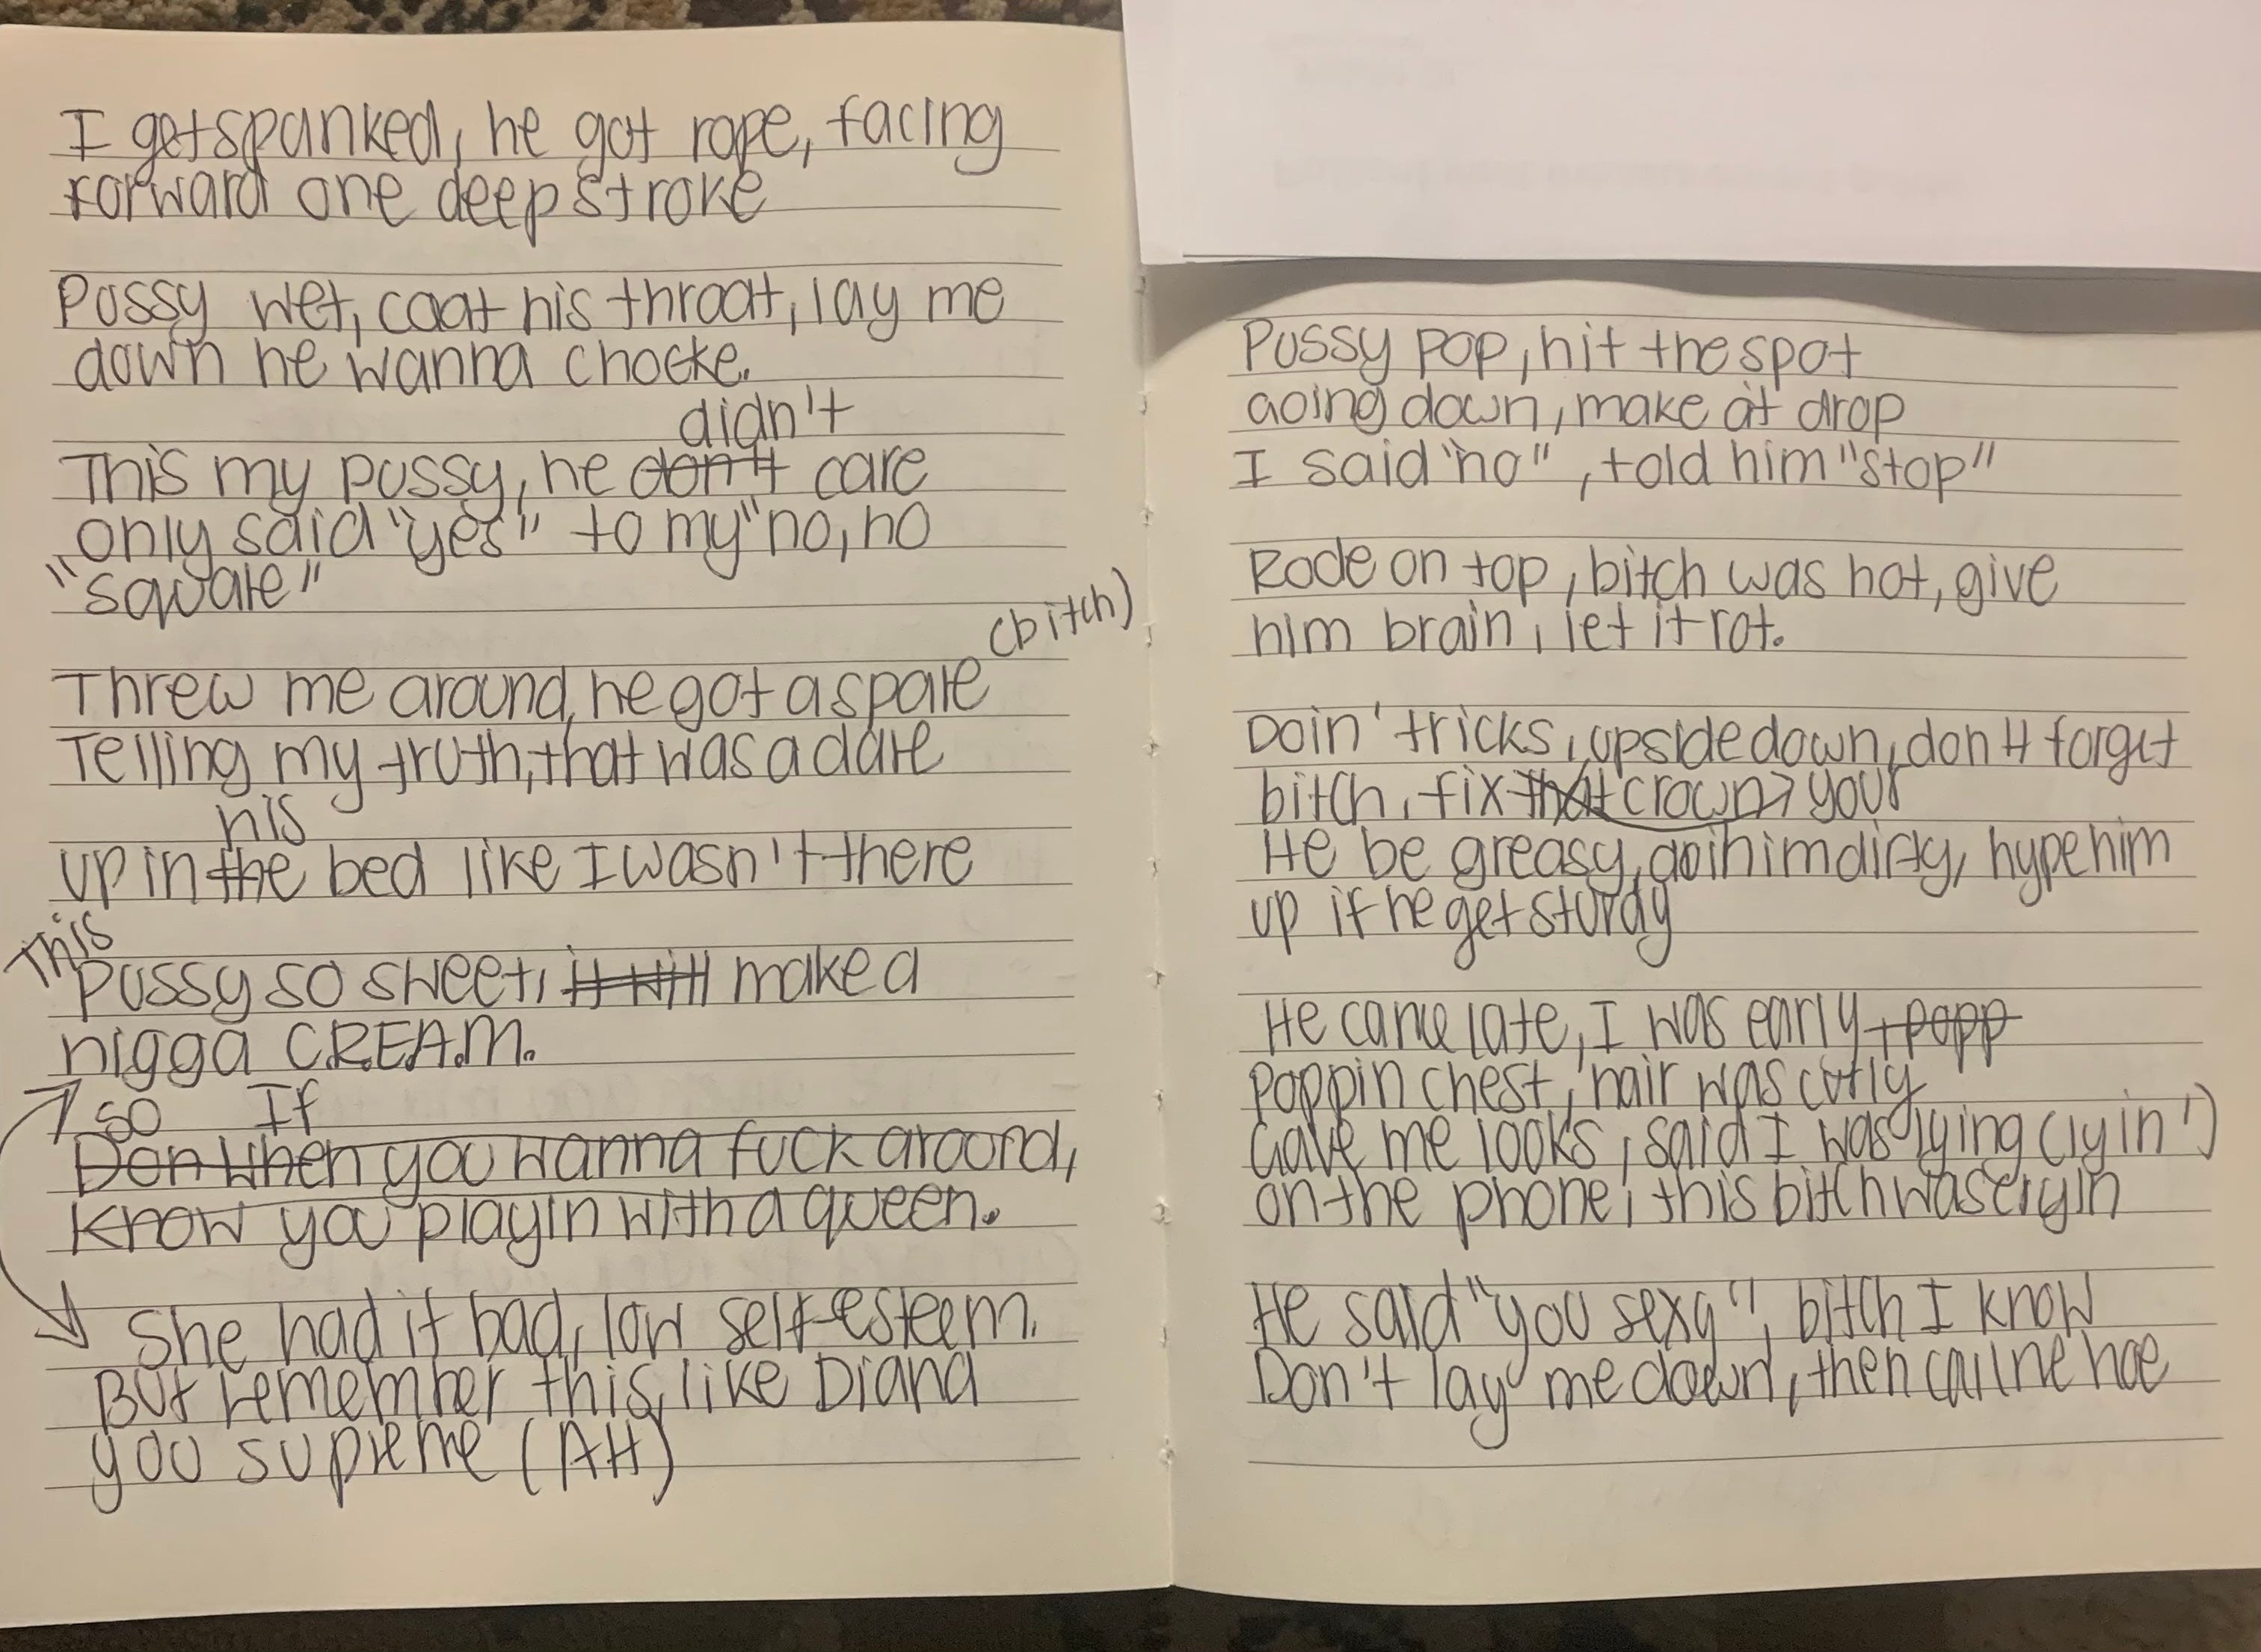 I get spanked, he got rope, facing
forward one deep stroke
Pussy wet, coat his throat, lay me
down he wanna chocke.
didn't
This my pussy, he don't care
only said "yes" to my "no, no
"square"
(bitch)
Threw me around, he got a spare
Telling my truth, that was a dare
his
up in the bed like I wasn't there
This
Pussy so sweet, it will make a
nigga C.R.E.A.M.
so If
Don when you wanna fuck around,
know you playin with a queen.
She had it bad, low self-esteem.
But remember this, like Diana
you supreme (AH)
Pussy pop, hit the spot
going down, make it drop
I said "no", told him "stop"
Rode on top, bitch was hot, give
him brain, let it rot.
Doin' tricks, upside down, don't forget
bitch, fix that crown your
He be greasy, him dirty, hype him
up if he get sturdy
He came late, I was early, popp
Poppin chest, hair was curly
Gave me looks, said I was lying (lyin')
on the phone, this bitch was cryin
He said "you sexy", bitch I know
Don't lay me down, then call me hoe